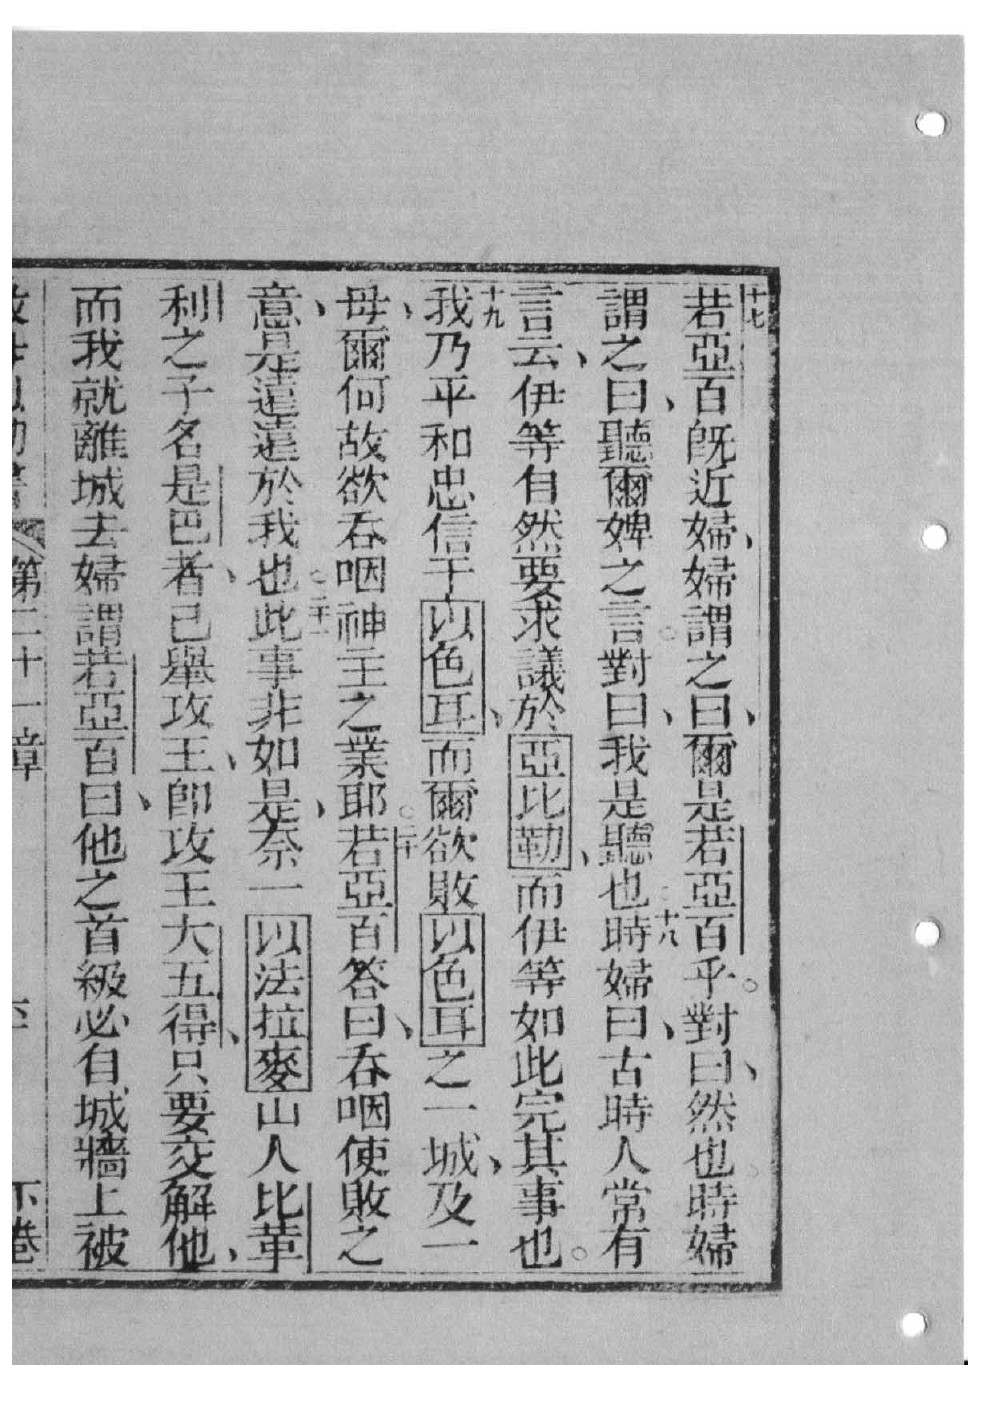 十七
若亞百旣近婦、婦謂之曰、爾是若亞百乎。對曰、然也。時婦
謂之曰、聽爾婢之言。對曰、我是聽也。十八時婦曰、古時人常有
言云、伊等自然要求議於亞比勒、而伊等如此完其事也。
十九
我乃平和忠信于以色耳、而爾欲敗以色耳之一城、及一
母、爾何故欲吞咽神主之業耶。二十若亞百答曰、吞咽使敗之
意、是遠遠於我也。二十一此事非如是、奈一以法拉麥山人比革
利之子名是巴者、已舉攻王、卽攻王大五得、只要交解他、
而我就離城去婦謂若亞百曰、他之首級必自城牆上被
第二十一章
下卷